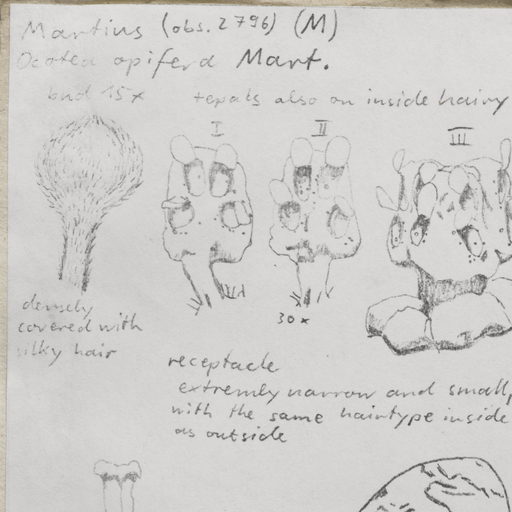 Martius (obs. 2796) (M)
Ocotea opifera Mart.
bud 15x
tepals also on inside hairy
I
II
III
30x
densely
covered with
silky hair
receptacle
extremely narrow and small,
with the same hairtype inside
as outside